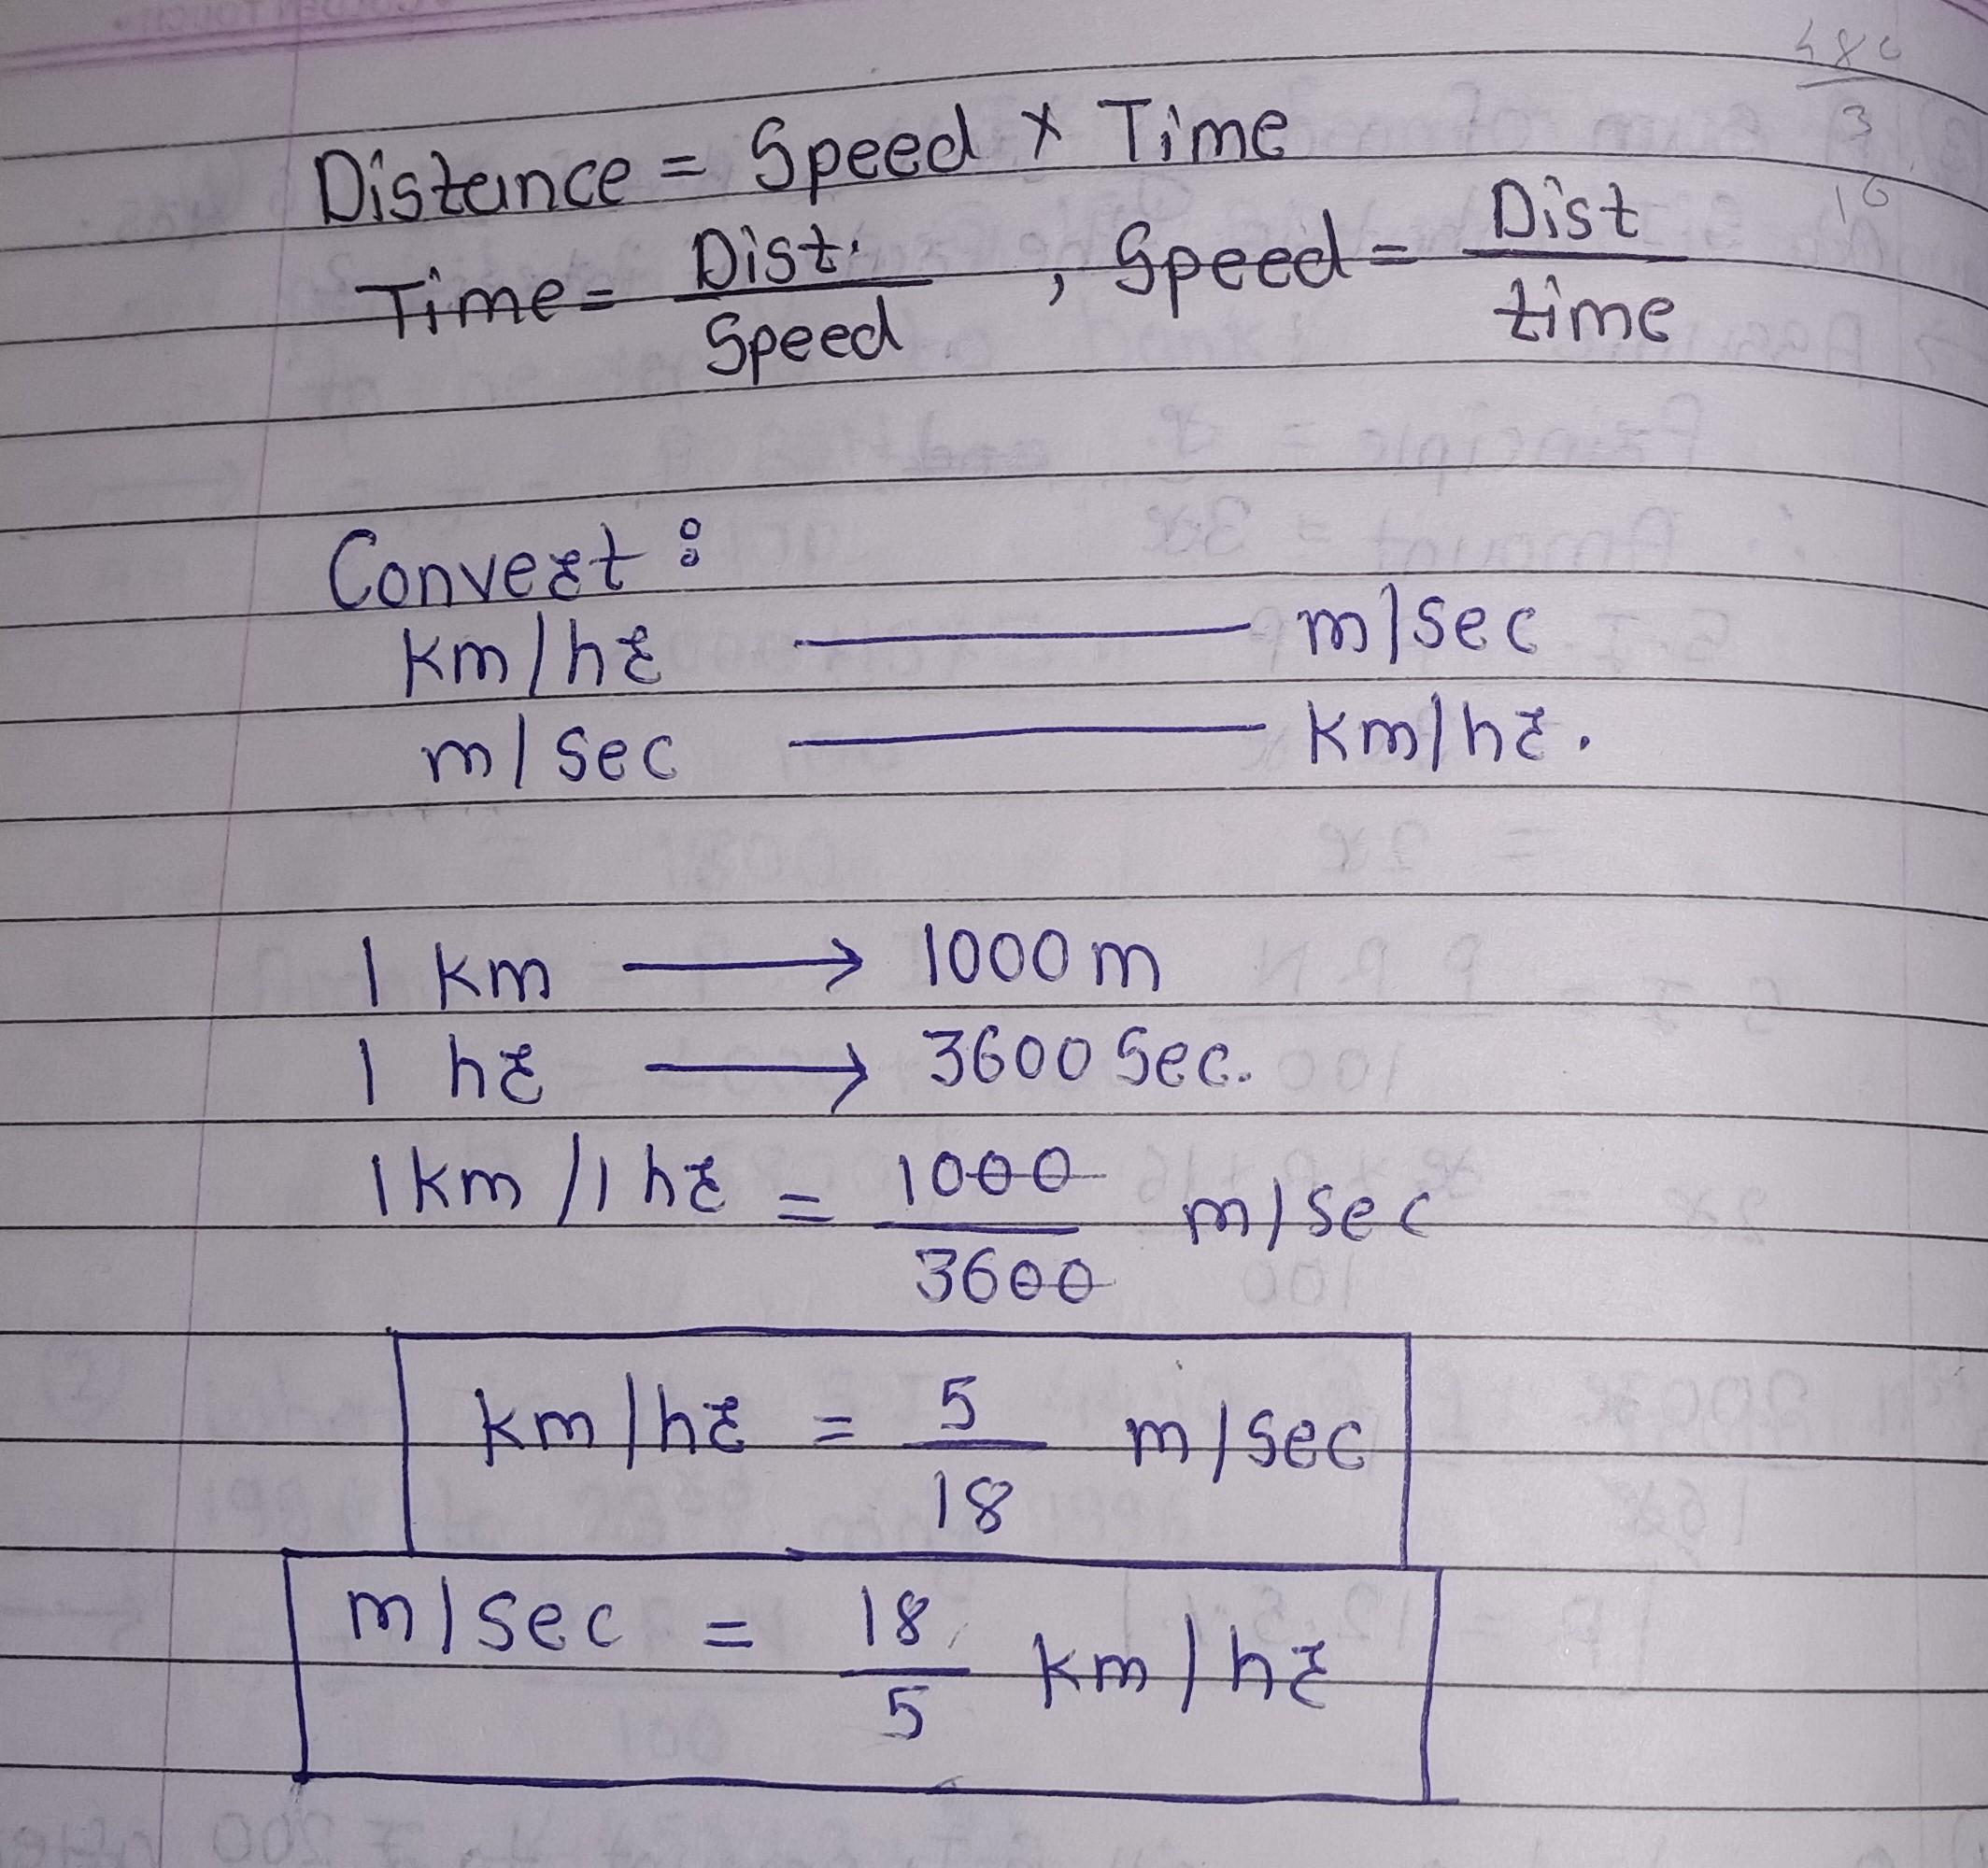 Distance = Speed x Time
Time = Dist. / Speed , Speed = Dist / time
Convert :
km/hr —— m/sec
m/sec —— km/hr.
1 km → 1000 m
1 hr → 3600 Sec.
1 km / 1 hr = 1000 / 3600 m/sec
km/hr = 5 / 18 m/sec
m/sec = 18 / 5 km/hr